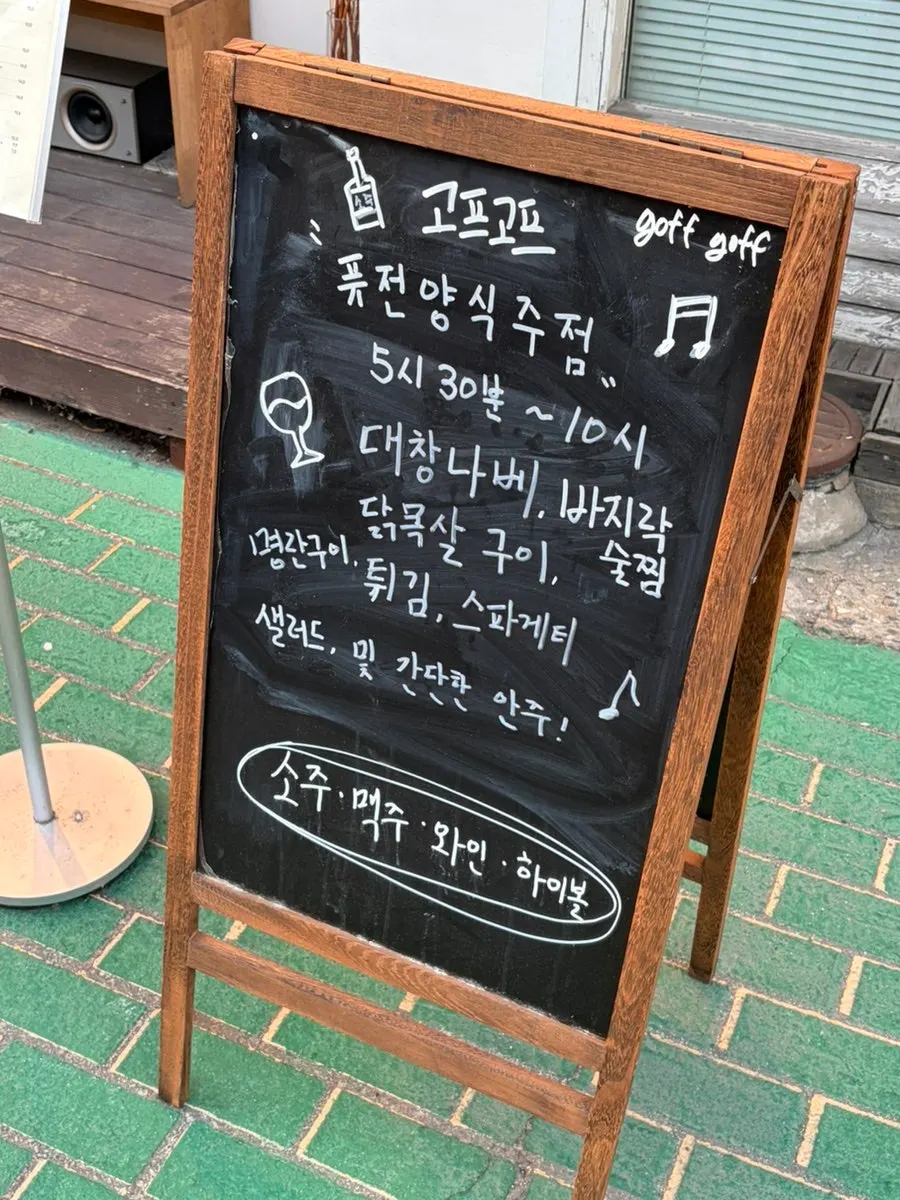 소주
고프고프
goff goff
퓨전양식주점
5시 30분 ~ 10시
대창나베, 바지락 술찜
닭목살 구이,
명란구이, 튀김, 스파게티
샐러드, 및 간단한 안주!
소주 · 맥주 · 와인 · 하이볼